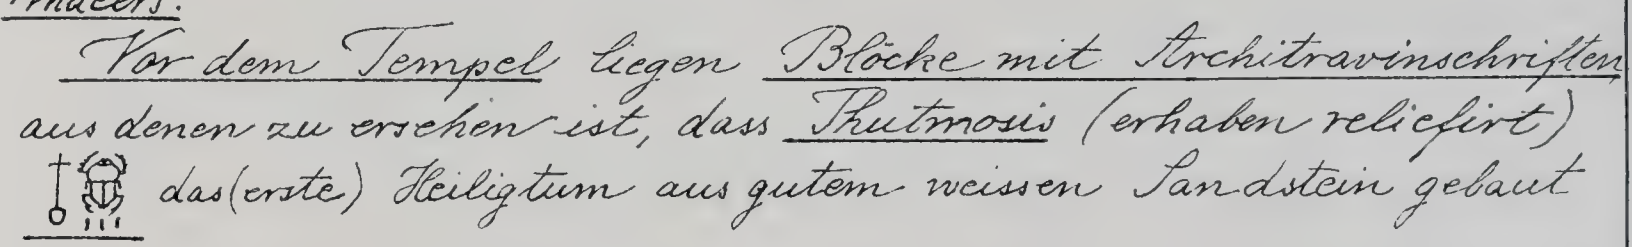 Vor dem Tempel liegen Blöcke mit Architravinschriften,
aus denen zu ersehen ist, dass Thutmosis (erhaben reliefirt)
𓄤𓆣𓏥 das (erste) Heiligtum aus gutem weissen Sandstein gebaut